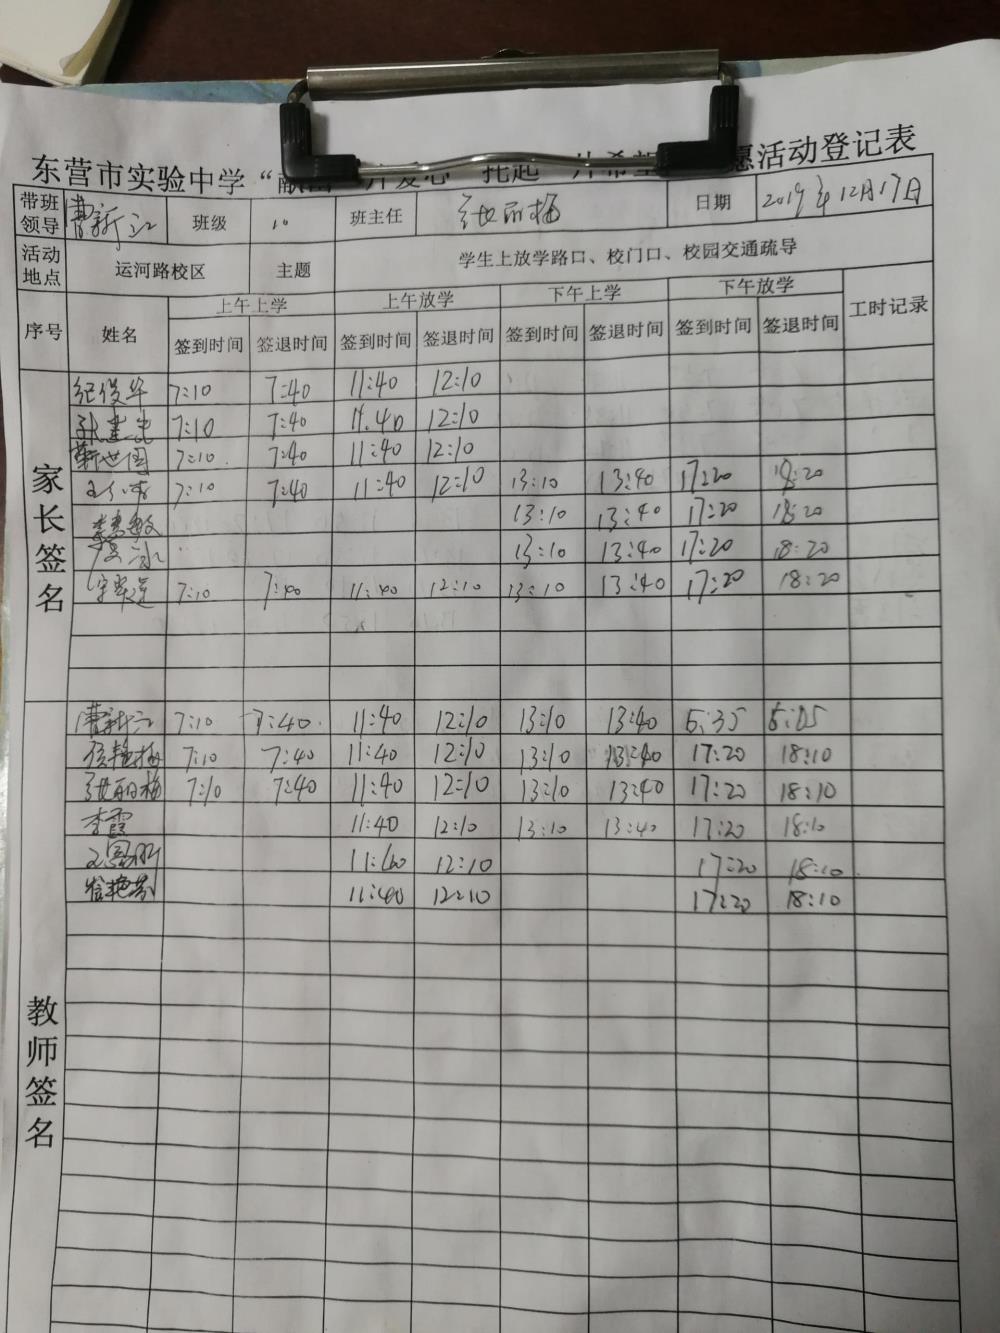 东营市实验中学“献出一片爱心 托起一片希望 愿活动登记表
带班领导 曹新江 班级 10 班主任 张丽梅 日期 2019年12月17日
活动地点 运河路校区 主题 学生上放学路口、校门口、校园交通疏导
序号 姓名 上午上学 上午放学 下午上学 下午放学 工时记录
签到时间 签退时间 签到时间 签退时间 签到时间 签退时间 签到时间 签退时间
家长签名
纪俊华 7:10 7:40 11:40 12:10
7:10 7:40 11:40 12:10
靳世国 7:10 7:40 11:40 12:10
7:10 7:40 11:40 12:10 13:10 13:40 17:20 18:20
李慧敏 13:10 13:40 17:20 18:20
13:10 13:40 17:20 18:20
7:10 7:40 11:40 12:10 13:10 13:40 17:20 18:20
教师签名
曹新江 7:10 7:40 11:40 12:10 13:10 13:40 5:35
7:10 7:40 11:40 12:10 13:10 13:40 17:20 18:10
张丽梅 7:10 7:40 11:40 12:10 13:10 13:40 17:20 18:10
李霞 11:40 12:10 13:10 13:40 17:20 18:10
11:40 12:10 17:20 18:10
11:40 12:10 17:20 18:10